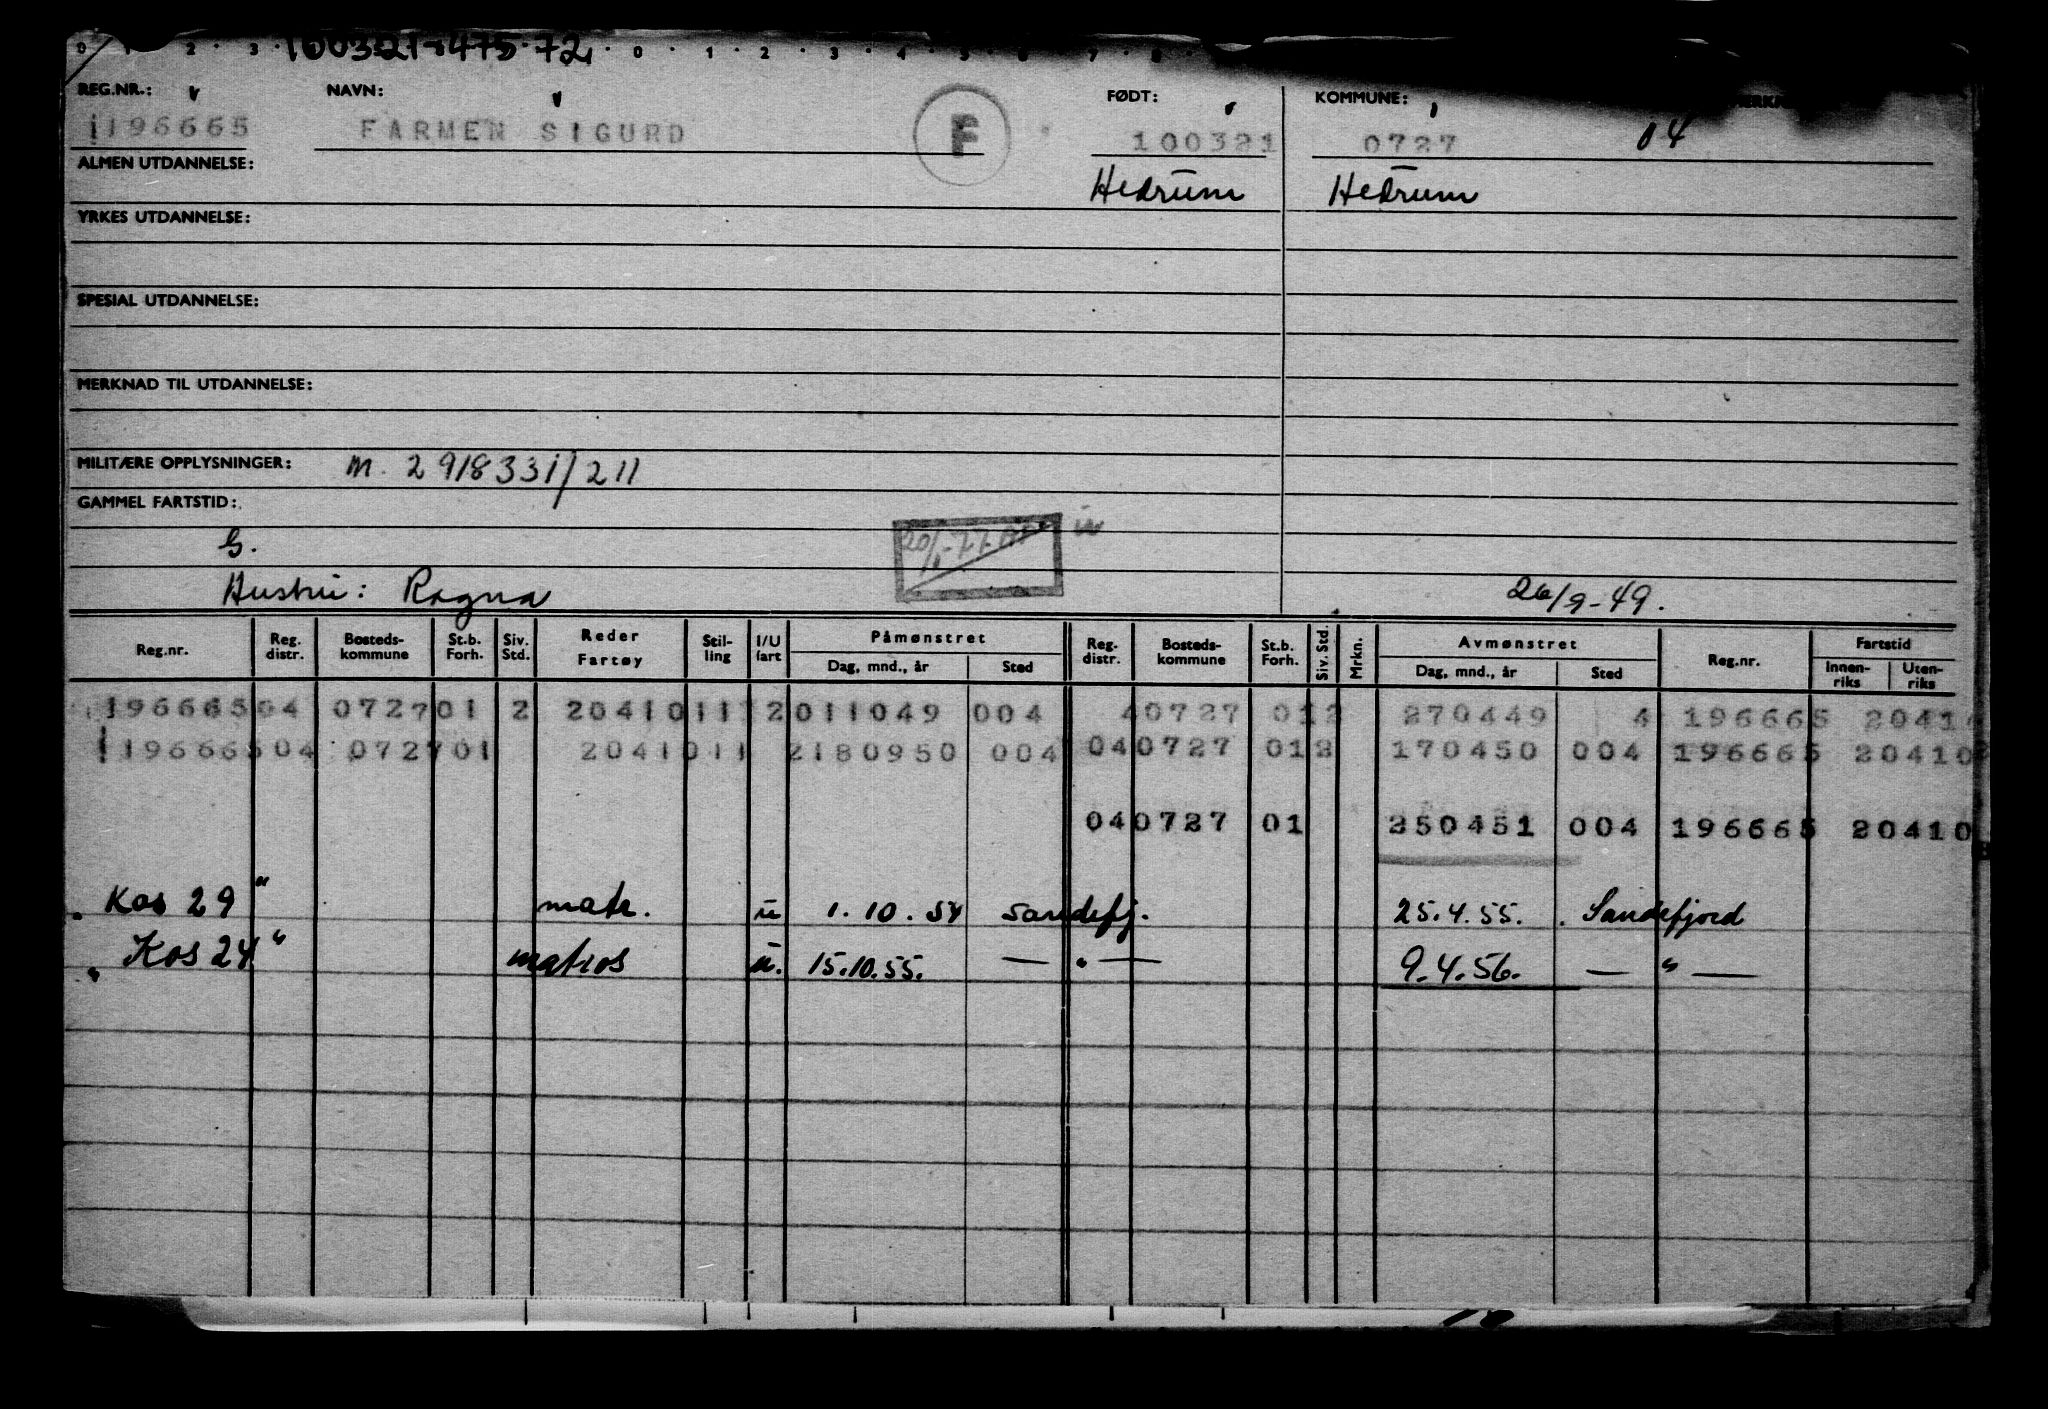 0 1 2 3 100321-475-72 0 1 2 3 4 5 6 7 8
REG.NR.: NAVN: FØDT: KOMMUNE:
196665 FARMEN SIGURD F 100321 0727 04
ALMEN UTDANNELSE: Hedrum Hedrum
YRKES UTDANNELSE:
SPESIAL UTDANNELSE:
MERKNAD TIL UTDANNELSE:
MILITÆRE OPPLYSNINGER: M. 2918331/211
GAMMEL FARTSTID:
G.
Hustru: Ragna 26/9-49.
Reg.nr. Reg. distr. Bosteds-kommune St.b. Forh. Siv. Std. Reder Fartøy Stil-ling I/U fart Påmønstret Dag, mnd., år Sted Reg. distr. Bosteds-kommune St.b. Forh. Siv. Std. Mrkn. Avmønstret Dag, mnd., år Sted Reg.nr. Fartstid Innen-riks Uten-riks
196665 04 0727 01 2 2041011 2 011049 004 40727 012 270449 4 196665 2041
196665 04 0727 01 2041011 2 180950 004 040727 012 170450 004 196665 20410
040727 01 250451 004 196665 20410
"Kos 29" matr. u 1.10.54 Sandefj. 25.4.55. Sandefjord
"Kos 24" matros u. 15.10.55. — " — 9.4.56. — " —